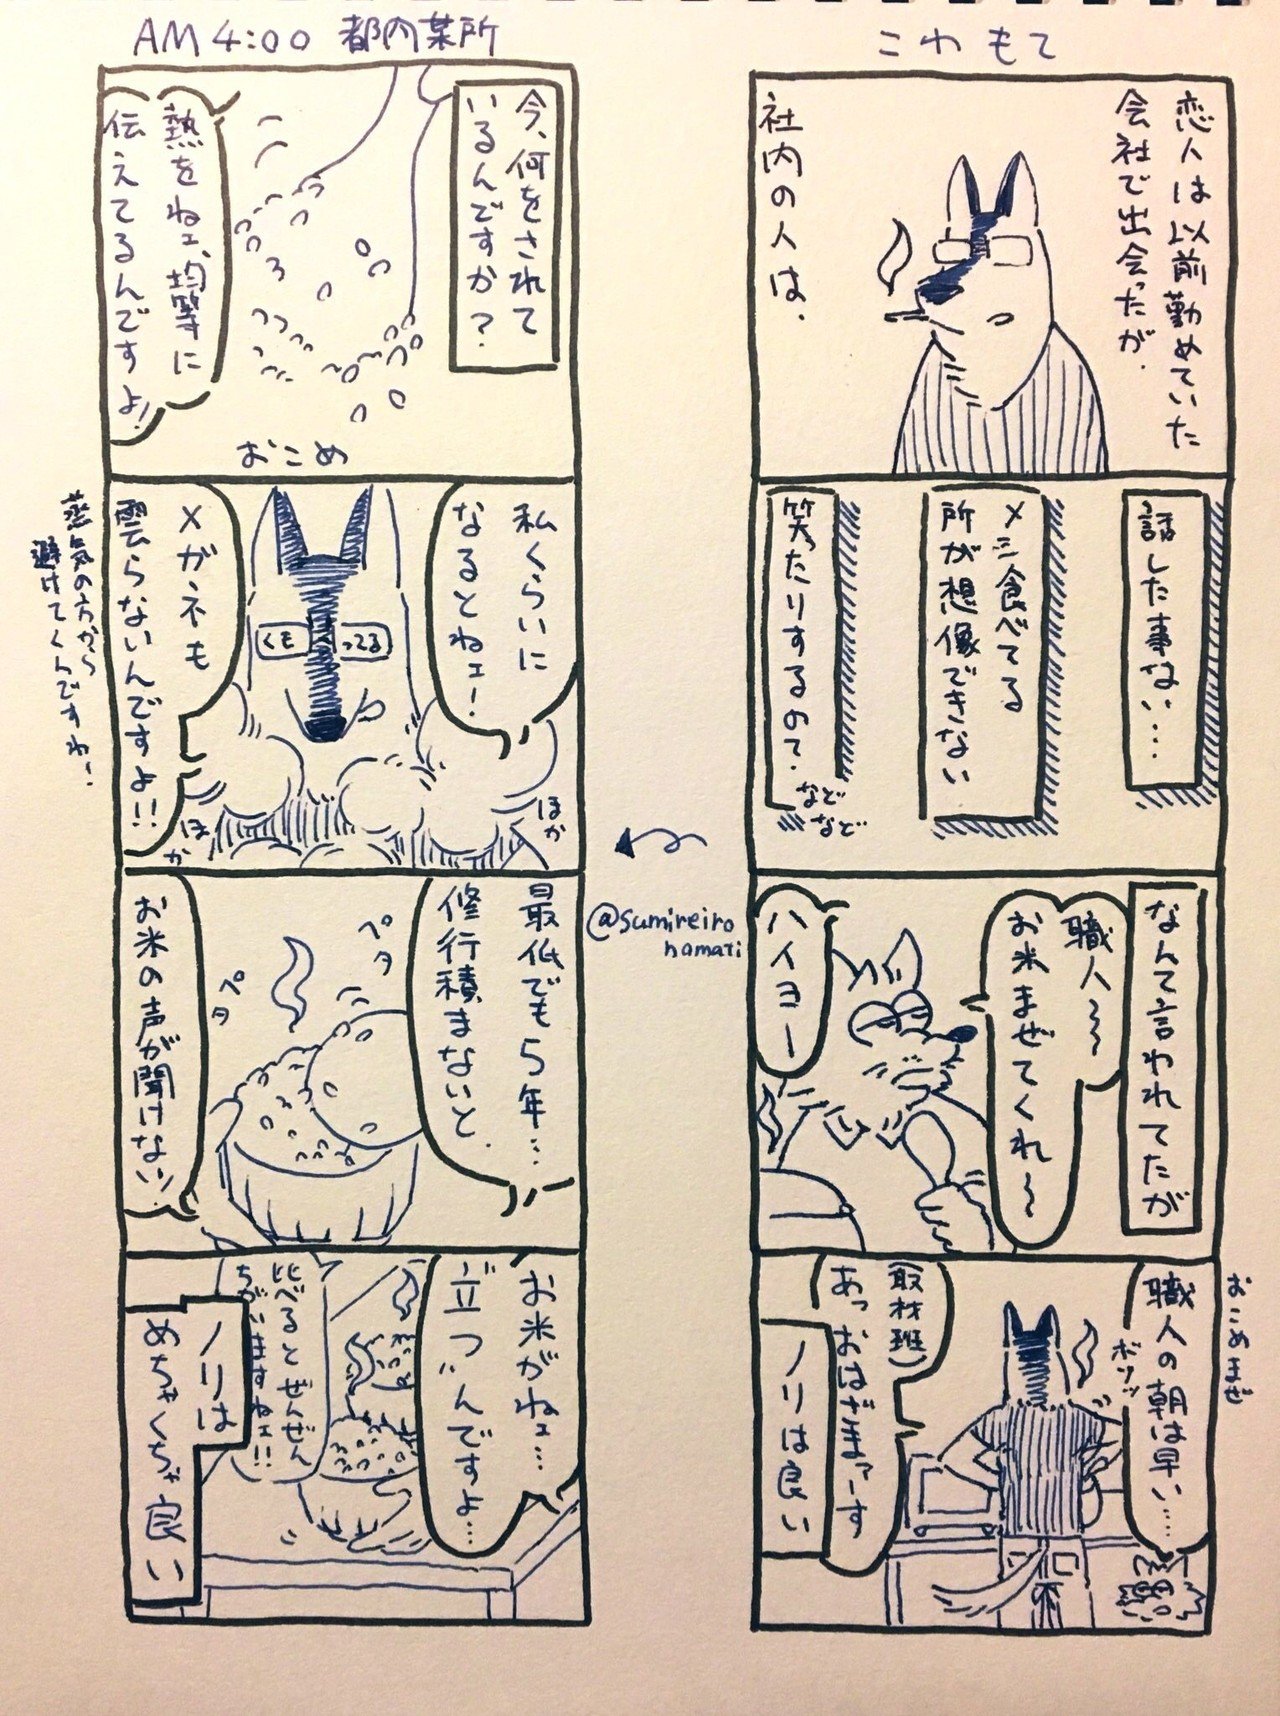 こわもて
恋人は以前勤めていた
会社で出会ったが、
社内の人は、
話した事ない…
メシ食べてる
所が想像できない
笑ったりするの?
などなど
なんて言われてたが
職人〜〜
お米まぜてくれ〜
ハイヨー
おこめまぜ
職人の朝は早い……
ボソッ
(取材班)
あっおはざまァーす
ノリは良い
@sumireiro
namari
AM4:00 都内某所
今、何をされて
いるんですか?
熱をねェ、均等に
伝えてるんですよ!
おこめ
私くらいに
なるとねェ!
くもってる
メガネも
雲らないんですよ!!
ほか
ほか
蒸気の方から
避けてくんですわ!
最低でも5年…
修行積まないと、
ペタ
ペタ
お米の声が聞けない!
お米がねェ…
"立つ"んですよ…
比べるとぜんぜん
ちがいますねェ!!
ノリは
めちゃくちゃ良い